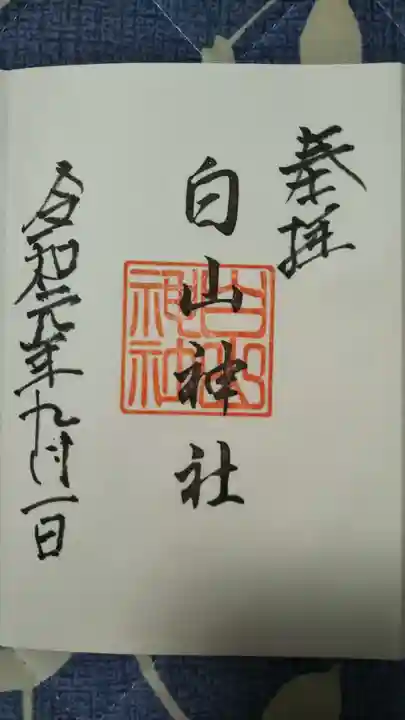 奉拝
白山神社
白山
神社
令和元年九月一日